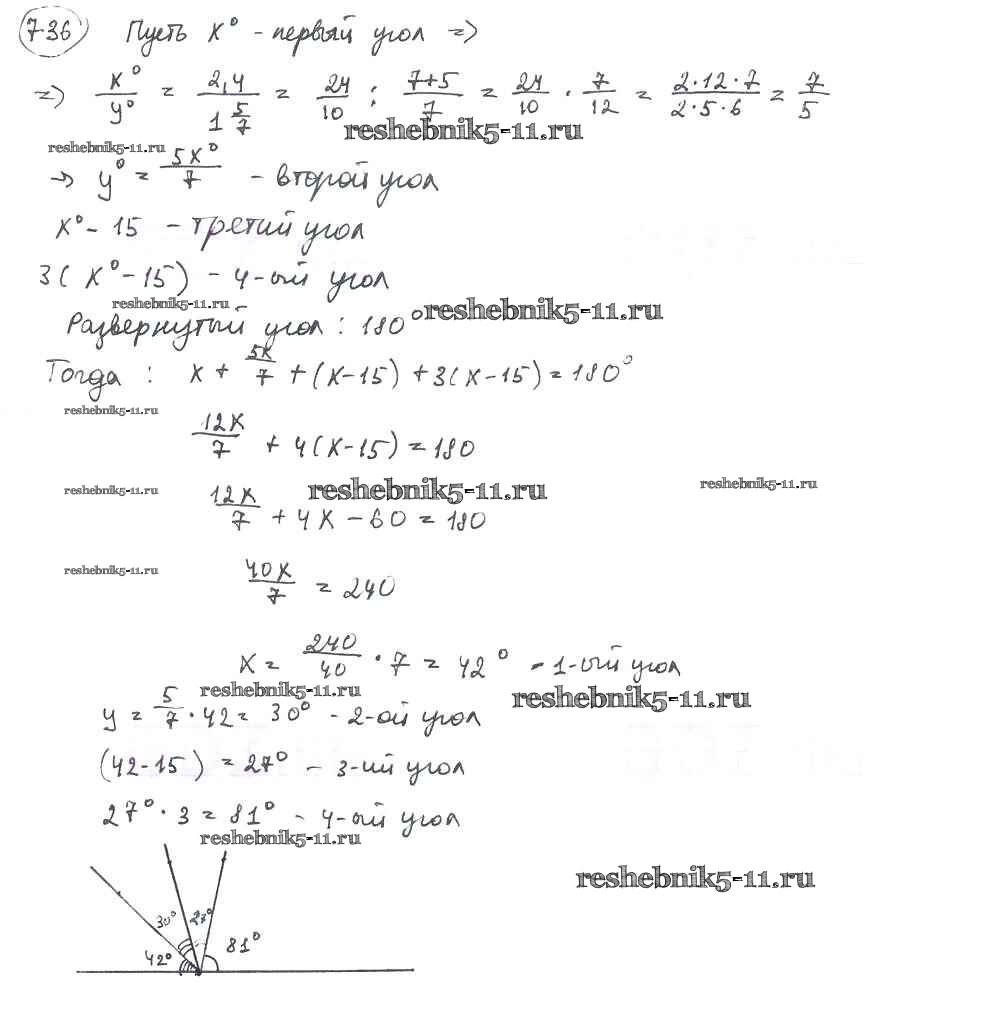 736 Пусть x° - первый угол =>
=> x°/y° = 2,4/1 5/7 = 24/10 : 7+5/7 = 24/10 · 7/12 = 2·12·7/2·5·6 = 7/5
reshebnik5-11.ru
reshebnik5-11.ru
=> y° = 5x°/7 - второй угол
x° - 15 - третий угол
3(x° - 15) - 4-ый угол
reshebnik5-11.ru
reshebnik5-11.ru
Развернутый угол : 180°
Тогда : x + 5x/7 + (x-15) + 3(x-15) = 180°
reshebnik5-11.ru
12x/7 + 4(x-15) = 180
reshebnik5-11.ru
reshebnik5-11.ru
reshebnik5-11.ru
12x/7 + 4x - 60 = 180
reshebnik5-11.ru
40x/7 = 240
x = 240/40 · 7 = 42° - 1-ый угол
reshebnik5-11.ru
reshebnik5-11.ru
y = 5/7 · 42 = 30° - 2-ой угол
(42-15) = 27° - 3-ий угол
27° · 3 = 81° - 4-ый угол
reshebnik5-11.ru
reshebnik5-11.ru
30° 27°
42° 81°